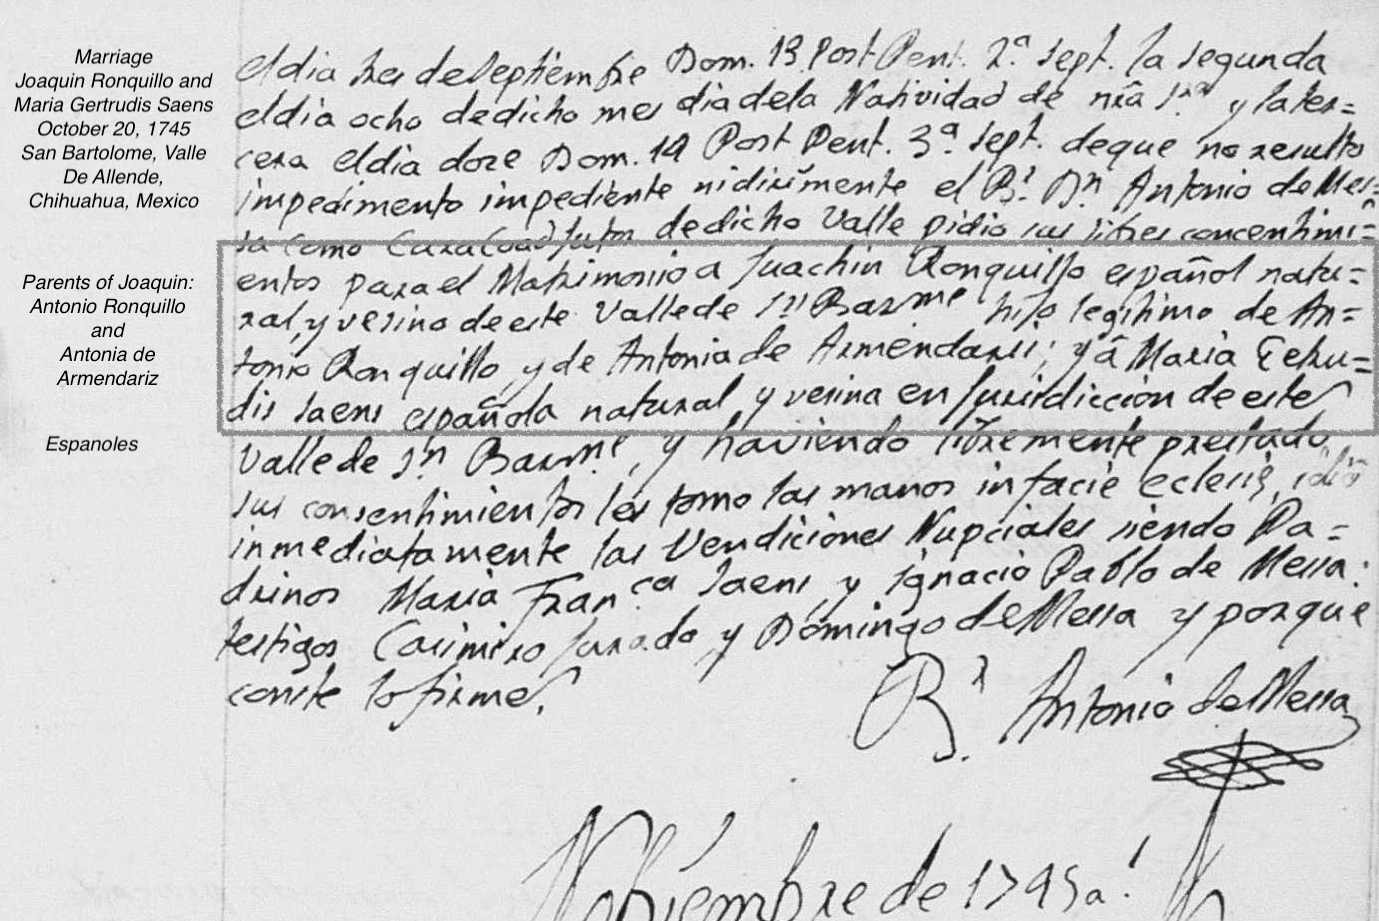 Marriage
Joaquin Ronquillo and
Maria Gertrudis Saens
October 20, 1745
San Bartolome, Valle
De Allende,
Chihuahua, Mexico
Parents of Joaquin:
Antonio Ronquillo
and
Antonia de
Armendariz
Espanoles
el dia tres de Septiembre Dom. 13 Post Pent. 2.ª sept. la segunda
el dia ocho de dicho mes dia de la Natividad de nrâ Sra y la ter=
cera el dia doze Dom. 14 Post Pent. 3.ª sept. de que no resulto
impedimento impediente ni dirimente el Br. Dn. Antonio de Mes=
sa como Cura Coadjutor de dicho Valle pidio sus libres concentimi=
entos para el Matrimonio a Juachin Ronquillo español natu=
ral, y vesino de este Valle de Sn Barme hijo legitimo de An=
tonio Ronquillo y de Antonia de Armendaris; y â Maria Getru=
dis Saens española natural y vesina en Jurisdiccion de este
Valle de Sn Barme, y haviendo libremente prestado
sus consentimientos les tomo las manos in facie eclesiȩ, i dió
inmediatamente las Vendiciones Nupciales siendo Pa=
drinos Maria Fran.ca Saens, y Ignacio Pablo de Messa:
testigos Casimiro Jurado y Domingo de Messa y porque
conste lo firme.
Br. Antonio de Messa
Nobiembre de 1745 a.